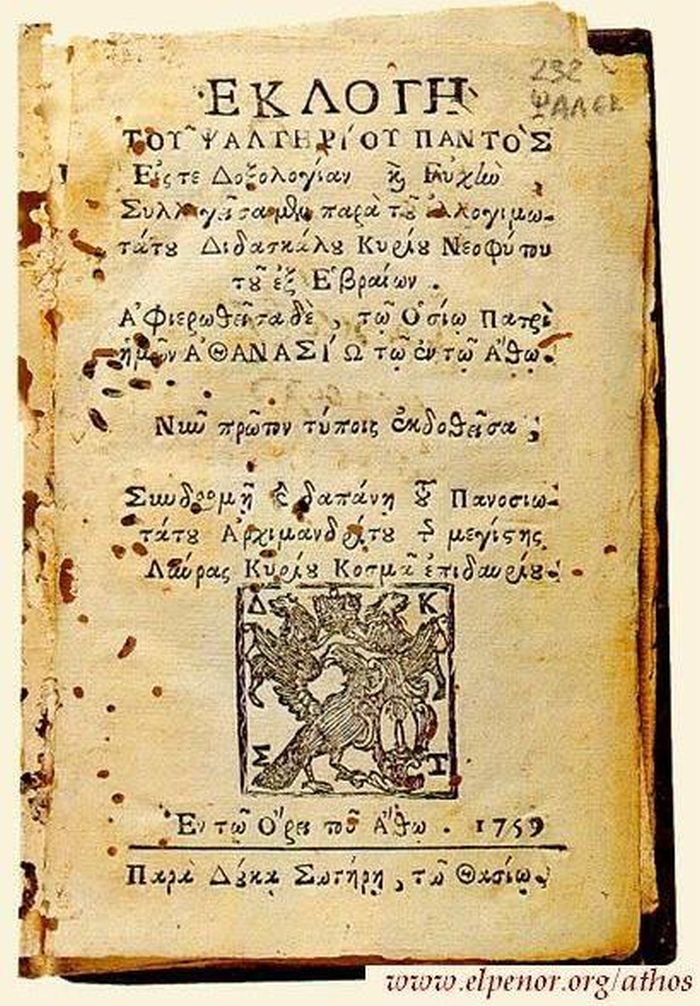 ΕΚΛΟΓῊ
232
ΨΑΛΕΚ
ΤΟΥ͂ ΨΑΛΤΗΡΊΟΥ ΠΑΝΤῸΣ
Εἴς τε Δοξολογίαν ϗ Εὐχὴν
Συλλεγεῖσα μὲν παρὰ τοῦ ἐλλογιμω-
τάτου Διδασκάλου Κυρίου Νεοφύτου
τοῦ ἐξ Ἑβραίων.
Ἀφιερωθεῖσα δὲ, τῷ Ὁσίῳ Πατρὶ
ἡμῶν ἈΘΑΝΑΣΊῼ τῷ ἐν τῷ Ἄθῳ.
Νῦν πρῶτον τύποις ἐκδοθεῖσα;
Συνδρομῇ ϗ δαπάνῃ τοῦ Πανοσιω-
τάτου Ἀρχιμανδρίτου τῆς μεγίστης
Λαύρας Κυρίου Κοσμᾶ ἐπιδαυρίου.
Δ Κ
Σ Τ
Ἐν τῷ Ὄρει τοῦ Ἄθω. 1759
Παρὰ Δούκᾳ Σωτήρῃ, τῷ Θασίῳ.
www.elpenor.org/athos